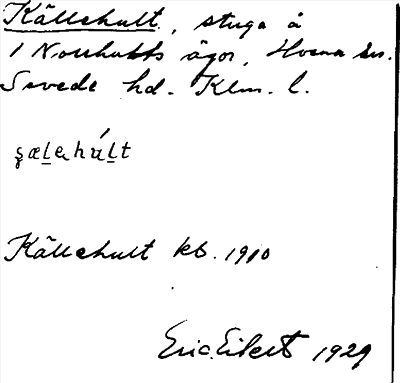 Källehult, stuga å
1 Norrhults ägor, Hvena sn.
Sevede hd. Klm. l.
Källehult kb. 1910
Eric Eilert 1929